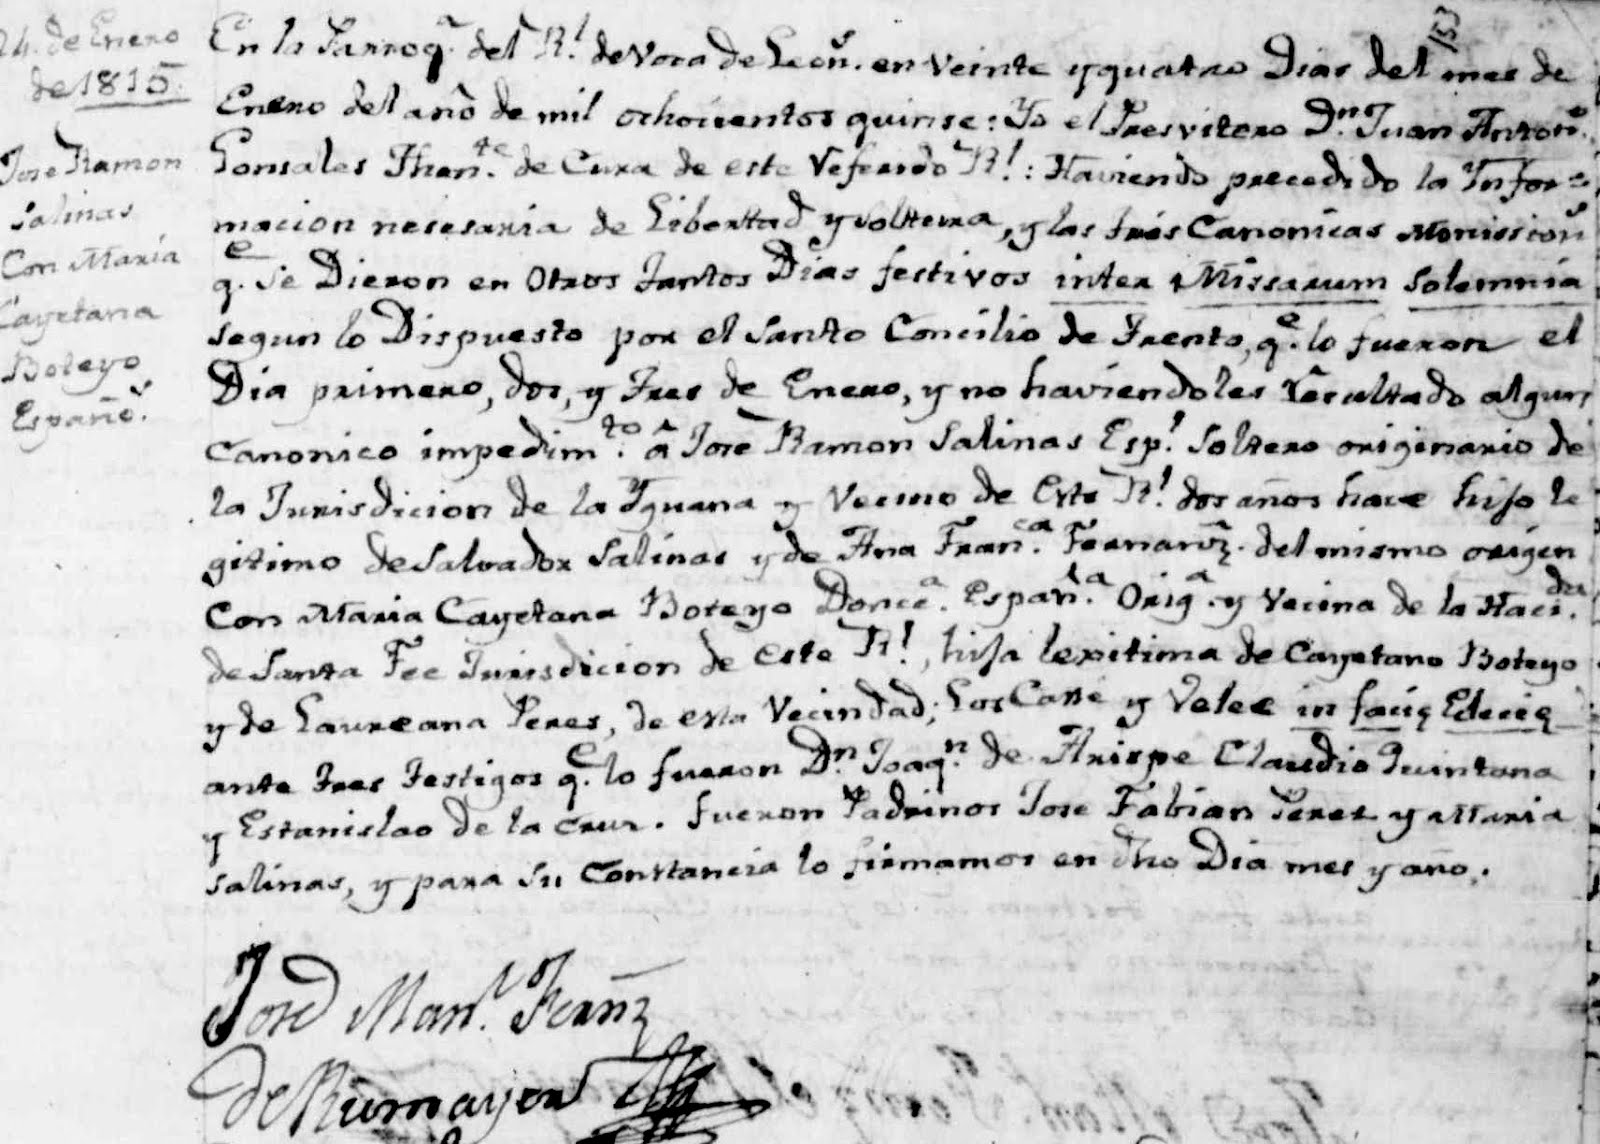 153
24. de Enero
de 1815.
Jose Ramon
Salinas
Con Maria
Cayetana
Boteyo
Españo.s
En la Parroq.a del R.l de Voca de Leon.s en veinte y quatro Dias del mes de
Enero del año de mil ochocientos quinse: Yo el Presvitero D.n Juan Anton.o
Gonsales Then.te de Cura de este Referido R.l: Haviendo precedido la Infor=
macion nesesaria de Libertad y Soltura, y las tres Canonicas Monission.s
q.e Se Dieron en Otros tantos Dias festivos inter Missarum Solemnia
segun lo Dispuesto por el Santo Concilio de Trento, q.e lo fueron el
Dia primero, dos, y tres de Enero, y no haviendoles resultado algun
Canonico impedim.to â Jose Ramon Salinas Esp.l Soltero originario de
la Jurisdicion de la Yguana y Vecino de Este R.l dos años hace hijo le
gitimo de Salvador Salinas y de Ana Fran.ca Fernanz. del mismo origen
Con Maria Cayetana Boteyo Donce.a Españ.la Orig.a y Vecina de la Haci.da
de Santa Fee Jurisdicion de este R.l, hija lexitima de Cayetano Boteyo
y de Laureana Peres, de esta Vecindad; Los Casse y Vele in facie Eclecie
ante tres testigos q.e lo fueron D.n Joaq.n de Arispe Claudio Quintana
y Estanislao de la Cruz. fueron Padrinos Jose Fabian Perez y Maria
Salinas, y para su Constancia lo firmamos en dho Dia mes y año.
José Man.l Fernz
de Rumayor